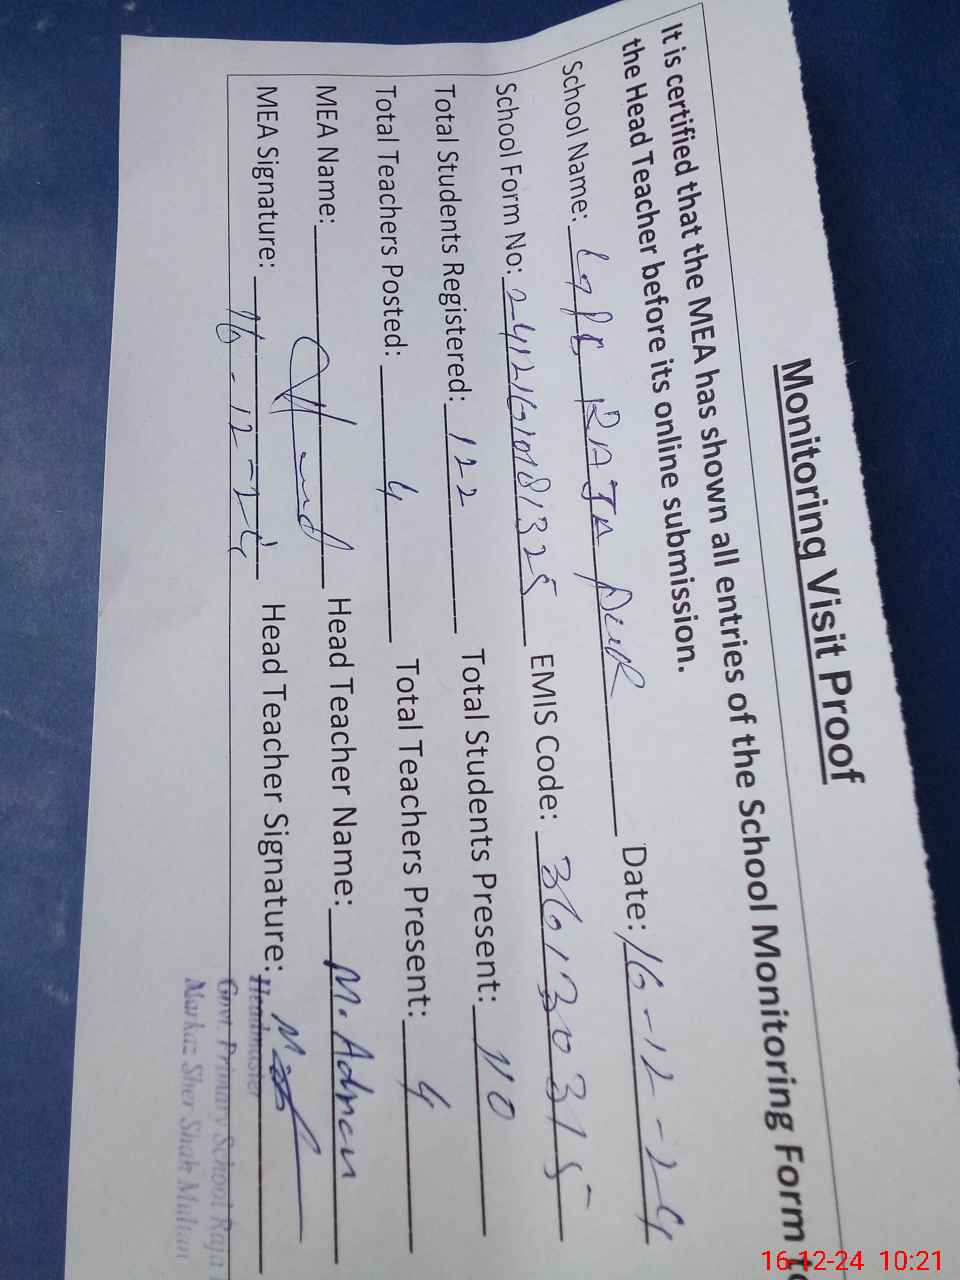 Monitoring Visit Proof
It is certified that the MEA has shown all entries of the School Monitoring Form to
the Head Teacher before its online submission.
School Name: RAJA PUR Date: 16-12-24
School Form No: EMIS Code: 36130315
Total Students Registered: 122 Total Students Present: 110
Total Teachers Posted: 4 Total Teachers Present: 4
MEA Name: Head Teacher Name: M. Adnan
MEA Signature: 16-12-24 Head Teacher Signature:
Headmaster
Govt. Primary School Raja
Markaz Sher Shah Multan
16-12-24 10:21